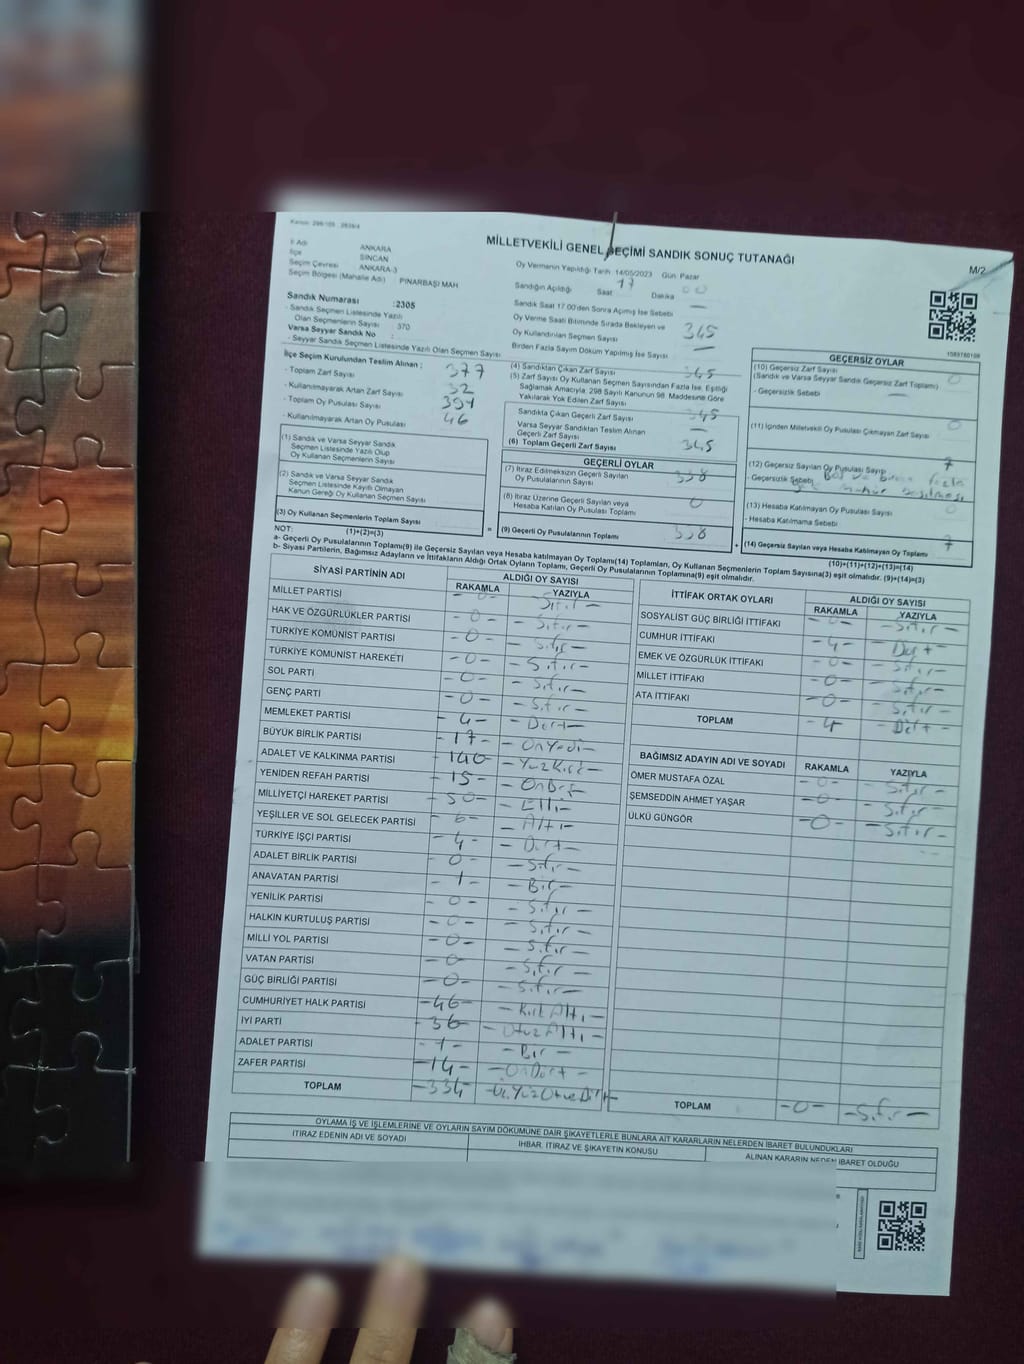 MİLLETVEKİLİ GENEL SEÇİMİ SANDIK SONUÇ TUTANAĞI
M/2
İl Adı ANKARA
İlçe SİNCAN
Seçim Çevresi ANKARA-3
Seçim Bölgesi (Mahalle Adı) PINARBAŞI MAH
Oy Vermenin Yapıldığı Tarih 14/05/2023 Gün Pazar
Sandığın Açıldığı Saat 17 Dakika 00
Sandık Saat 17.00'den Sonra Açımış İse Sebebi —
Oy Verme Saati Bitiminde Sırada Bekleyen ve
Oy Kullandırılan Seçmen Sayısı 345
Birden Fazla Sayım Döküm Yapılmış İse Sayısı —
Sandık Numarası :2305
- Sandık Seçmen Listesinde Yazılı
Olan Seçmenlerin Sayısı 370
Varsa Seyyar Sandık No :
- Seyyar Sandık Seçmen Listesinde Yazılı Olan Seçmen Sayısı
İlçe Seçim Kurulundan Teslim Alınan ;
- Toplam Zarf Sayısı 377
- Kullanılmayarak Artan Zarf Sayısı 32
- Toplam Oy Pusulası Sayısı 391
- Kullanılmayarak Artan Oy Pusulası 46
(1) Sandık ve Varsa Seyyar Sandık
Seçmen Listesinde Yazılı Olup
Oy Kullanan Seçmenlerin Sayısı
(2) Sandık ve Varsa Seyyar Sandık
Seçmen Listesinde Kayıtlı Olmayan
Kanun Gereği Oy Kullanan Seçmen Sayısı
(3) Oy Kullanan Seçmenlerin Toplam Sayısı
(1)+(2)=(3)
(4) Sandıktan Çıkan Zarf Sayısı 345
(5) Zarf Sayısı Oy Kullanan Seçmen Sayısından Fazla İse, Eşitliği
Sağlamak Amacıyla; 298 Sayılı Kanunun 98. Maddesine Göre
Yakılarak Yok Edilen Zarf Sayısı —
Sandıkta Çıkan Geçerli Zarf Sayısı 345
Varsa Seyyar Sandıktan Teslim Alınan
Geçerli Zarf Sayısı —
(6) Toplam Geçerli Zarf Sayısı 345
GEÇERLİ OYLAR
(7) İtiraz Edilmeksizin Geçerli Sayılan
Oy Pusulasının Sayısı 338
(8) İtiraz Üzerine Geçerli Sayılan veya
Hesaba Katılan Oy Pusulası Toplamı 0
= (9) Geçerli Oy Pusulalarının Toplamı 338
GEÇERSİZ OYLAR
(10) Geçersiz Zarf Sayısı
(Sandık ve Varsa Seyyar Sandık Geçersiz Zarf Toplamı) 0
- Geçersizlik Sebebi
(11) İçinden Milletvekili Oy Pusulası Çıkmayan Zarf Sayısı 0
(12) Geçersiz Sayılan Oy Pusulası Sayısı 7
- Geçersizlik Sebebi
(13) Hesaba Katılmayan Oy Pusulası Sayısı 0
- Hesaba Katılmama Sebebi
+ (14) Geçersiz Sayılan veya Hesaba Katılmayan Oy Toplamı 7
(10)+(11)+(12)+(13)=(14)
NOT:
a- Geçerli Oy Pusulalarının Toplamı(9) ile Geçersiz Sayılan veya Hesaba katılmayan Oy Toplamı(14) Toplamları, Oy Kullanan Seçmenlerin Toplam Sayısına(3) eşit olmalıdır. (9)+(14)=(3)
b- Siyasi Partilerin, Bağımsız Adayların ve İttifakların Aldığı Ortak Oyların Toplamı, Geçerli Oy Pusulalarının Toplamına(9) eşit olmalıdır.
SİYASİ PARTİNİN ADI ALDIĞI OY SAYISI
RAKAMLA YAZIYLA
MİLLET PARTİSİ -0- Sıfır-
HAK VE ÖZGÜRLÜKLER PARTİSİ -0- -Sıfır-
TÜRKİYE KOMÜNİST PARTİSİ -0- -Sıfır-
TÜRKİYE KOMÜNİST HAREKETİ -0- -Sıfır-
SOL PARTİ -0- -Sıfır-
GENÇ PARTİ -0- -Sıfır-
MEMLEKET PARTİSİ -4- -Dört-
BÜYÜK BİRLİK PARTİSİ -17- -OnYedi-
ADALET VE KALKINMA PARTİSİ -140- -YüzKırk-
YENİDEN REFAH PARTİSİ -15- -OnBeş
MİLLİYETÇİ HAREKET PARTİSİ -50- -Elli-
YEŞİLLER VE SOL GELECEK PARTİSİ -6- -Altı-
TÜRKİYE İŞÇİ PARTİSİ -4- -Dört-
ADALET BİRLİK PARTİSİ -0- -Sıfır-
ANAVATAN PARTİSİ -1- -Bir-
YENİLİK PARTİSİ -0- -Sıfır-
HALKIN KURTULUŞ PARTİSİ -0- -Sıfır-
MİLLİ YOL PARTİSİ -0- -Sıfır-
VATAN PARTİSİ -0- -Sıfır-
GÜÇ BİRLİĞİ PARTİSİ -0- -Sıfır-
CUMHURİYET HALK PARTİSİ -46- -Kırk Altı-
İYİ PARTİ -36- -Otuz Altı-
ADALET PARTİSİ -1- -Bir-
ZAFER PARTİSİ -14- -OnDört-
TOPLAM -334- -ÜçYüzOtuzDört-
İTTİFAK ORTAK OYLARI ALDIĞI OY SAYISI
RAKAMLA YAZIYLA
SOSYALİST GÜÇ BİRLİĞİ İTTİFAKI -0- -Sıfır-
CUMHUR İTTİFAKI -4- -Dört-
EMEK VE ÖZGÜRLÜK İTTİFAKI -0- -Sıfır-
MİLLET İTTİFAKI -0- -Sıfır-
ATA İTTİFAKI -0- -Sıfır-
TOPLAM -4 -Dört-
BAĞIMSIZ ADAYIN ADI VE SOYADI RAKAMLA YAZIYLA
ÖMER MUSTAFA ÖZAL -0- -Sıfır-
ŞEMSEDDİN AHMET YAŞAR -0- -Sıfır-
ÜLKÜ GÜNGÖR -0- -Sıfır-
TOPLAM -0- -Sıfır-
OYLAMA İŞ VE İŞLEMLERİNE VE OYLARIN SAYIM DÖKÜMÜNE DAİR ŞİKAYETLERLE BUNLARA AİT KARARLARIN NELERDEN İBARET BULUNDUKLARI
İTİRAZ EDENİN ADI VE SOYADI İHBAR, İTİRAZ VE ŞİKAYETİN KONUSU ALINAN KARARIN NEDEN İBARET OLDUĞU